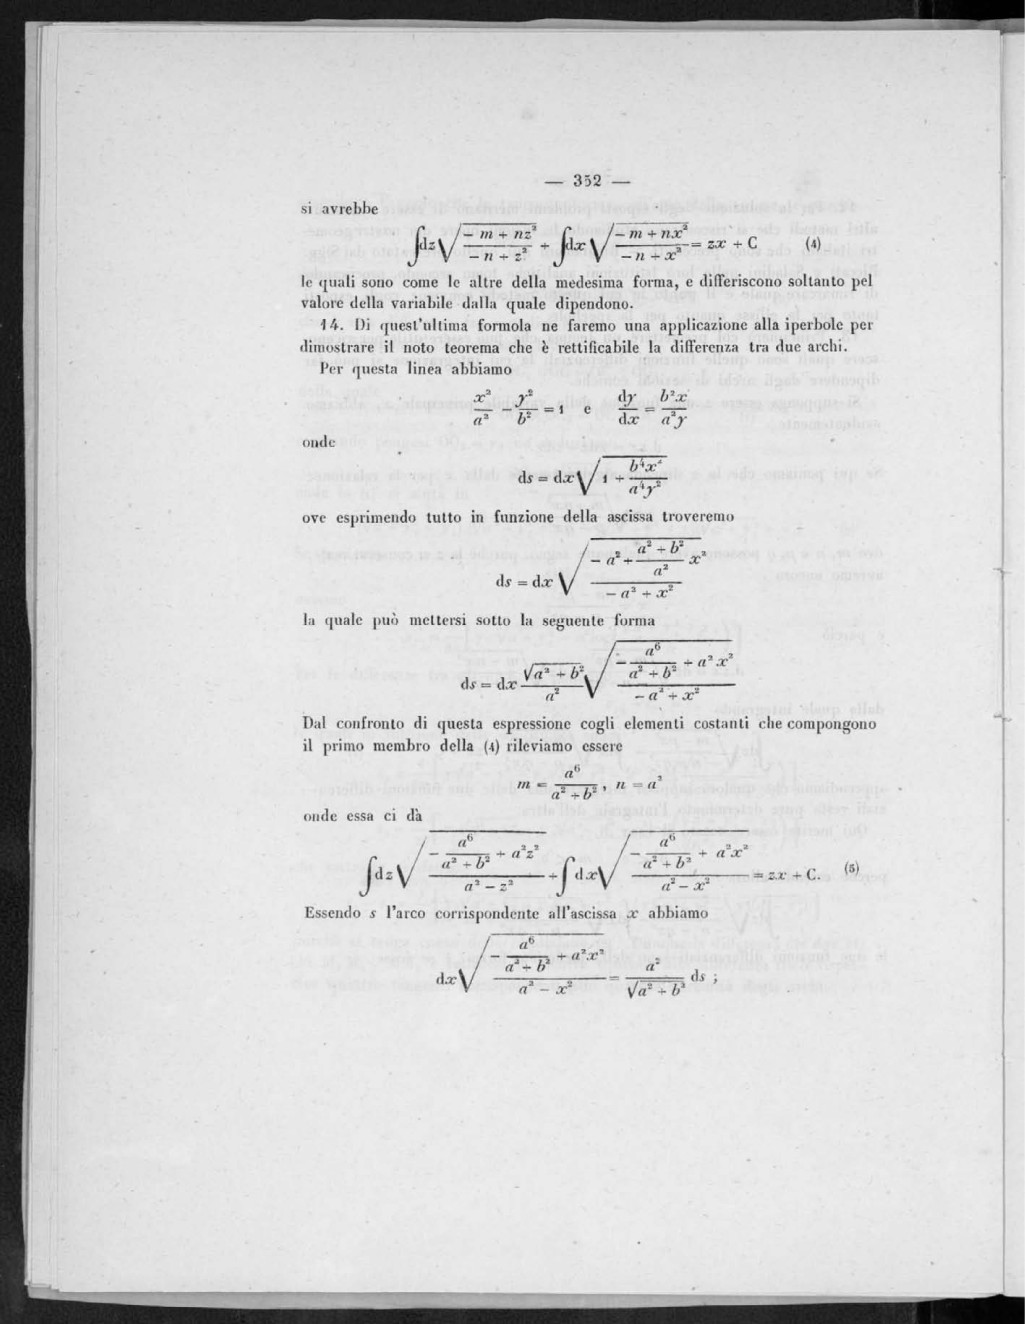 — 352 —
si avrebbe
∫dz√((− m + nz²)/(− n + z²)) + ∫dx√((− m + nx²)/(− n + x²)) = zx + C (4)
le quali sono come le altre della medesima forma, e differiscono soltanto pel
valore della variabile dalla quale dipendono.
14. Di quest'ultima formola ne faremo una applicazione alla iperbole per
dimostrare il noto teorema che è rettificabile la differenza tra due archi.
Per questa linea abbiamo
x²/a² − y²/b² = 1 e dy/dx = b²x/a²y
onde
ds = dx√(1 + b⁴x²/a⁴y²)
ove esprimendo tutto in funzione della ascissa troveremo
ds = dx√((− a² + ((a² + b²)/a²) x²)/(− a² + x²))
la quale può mettersi sotto la seguente forma
ds = dx (√(a² + b²)/a²) √((− a⁶/(a² + b²) + a² x²)/(− a² + x²))
Dal confronto di questa espressione cogli elementi costanti che compongono
il primo membro della (4) rileviamo essere
m = a⁶/(a² + b²), n = a²
onde essa ci dà
∫dz√((− a⁶/(a² + b²) + a²z²)/(a² − z²)) + ∫dx√((− a⁶/(a² + b²) + a²x²)/(a² − x²)) = zx + C. (5)
Essendo s l'arco corrispondente all'ascissa x abbiamo
dx√((− a⁶/(a² + b²) + a²x²)/(a² − x²)) = (a²/√(a² + b²)) ds ;